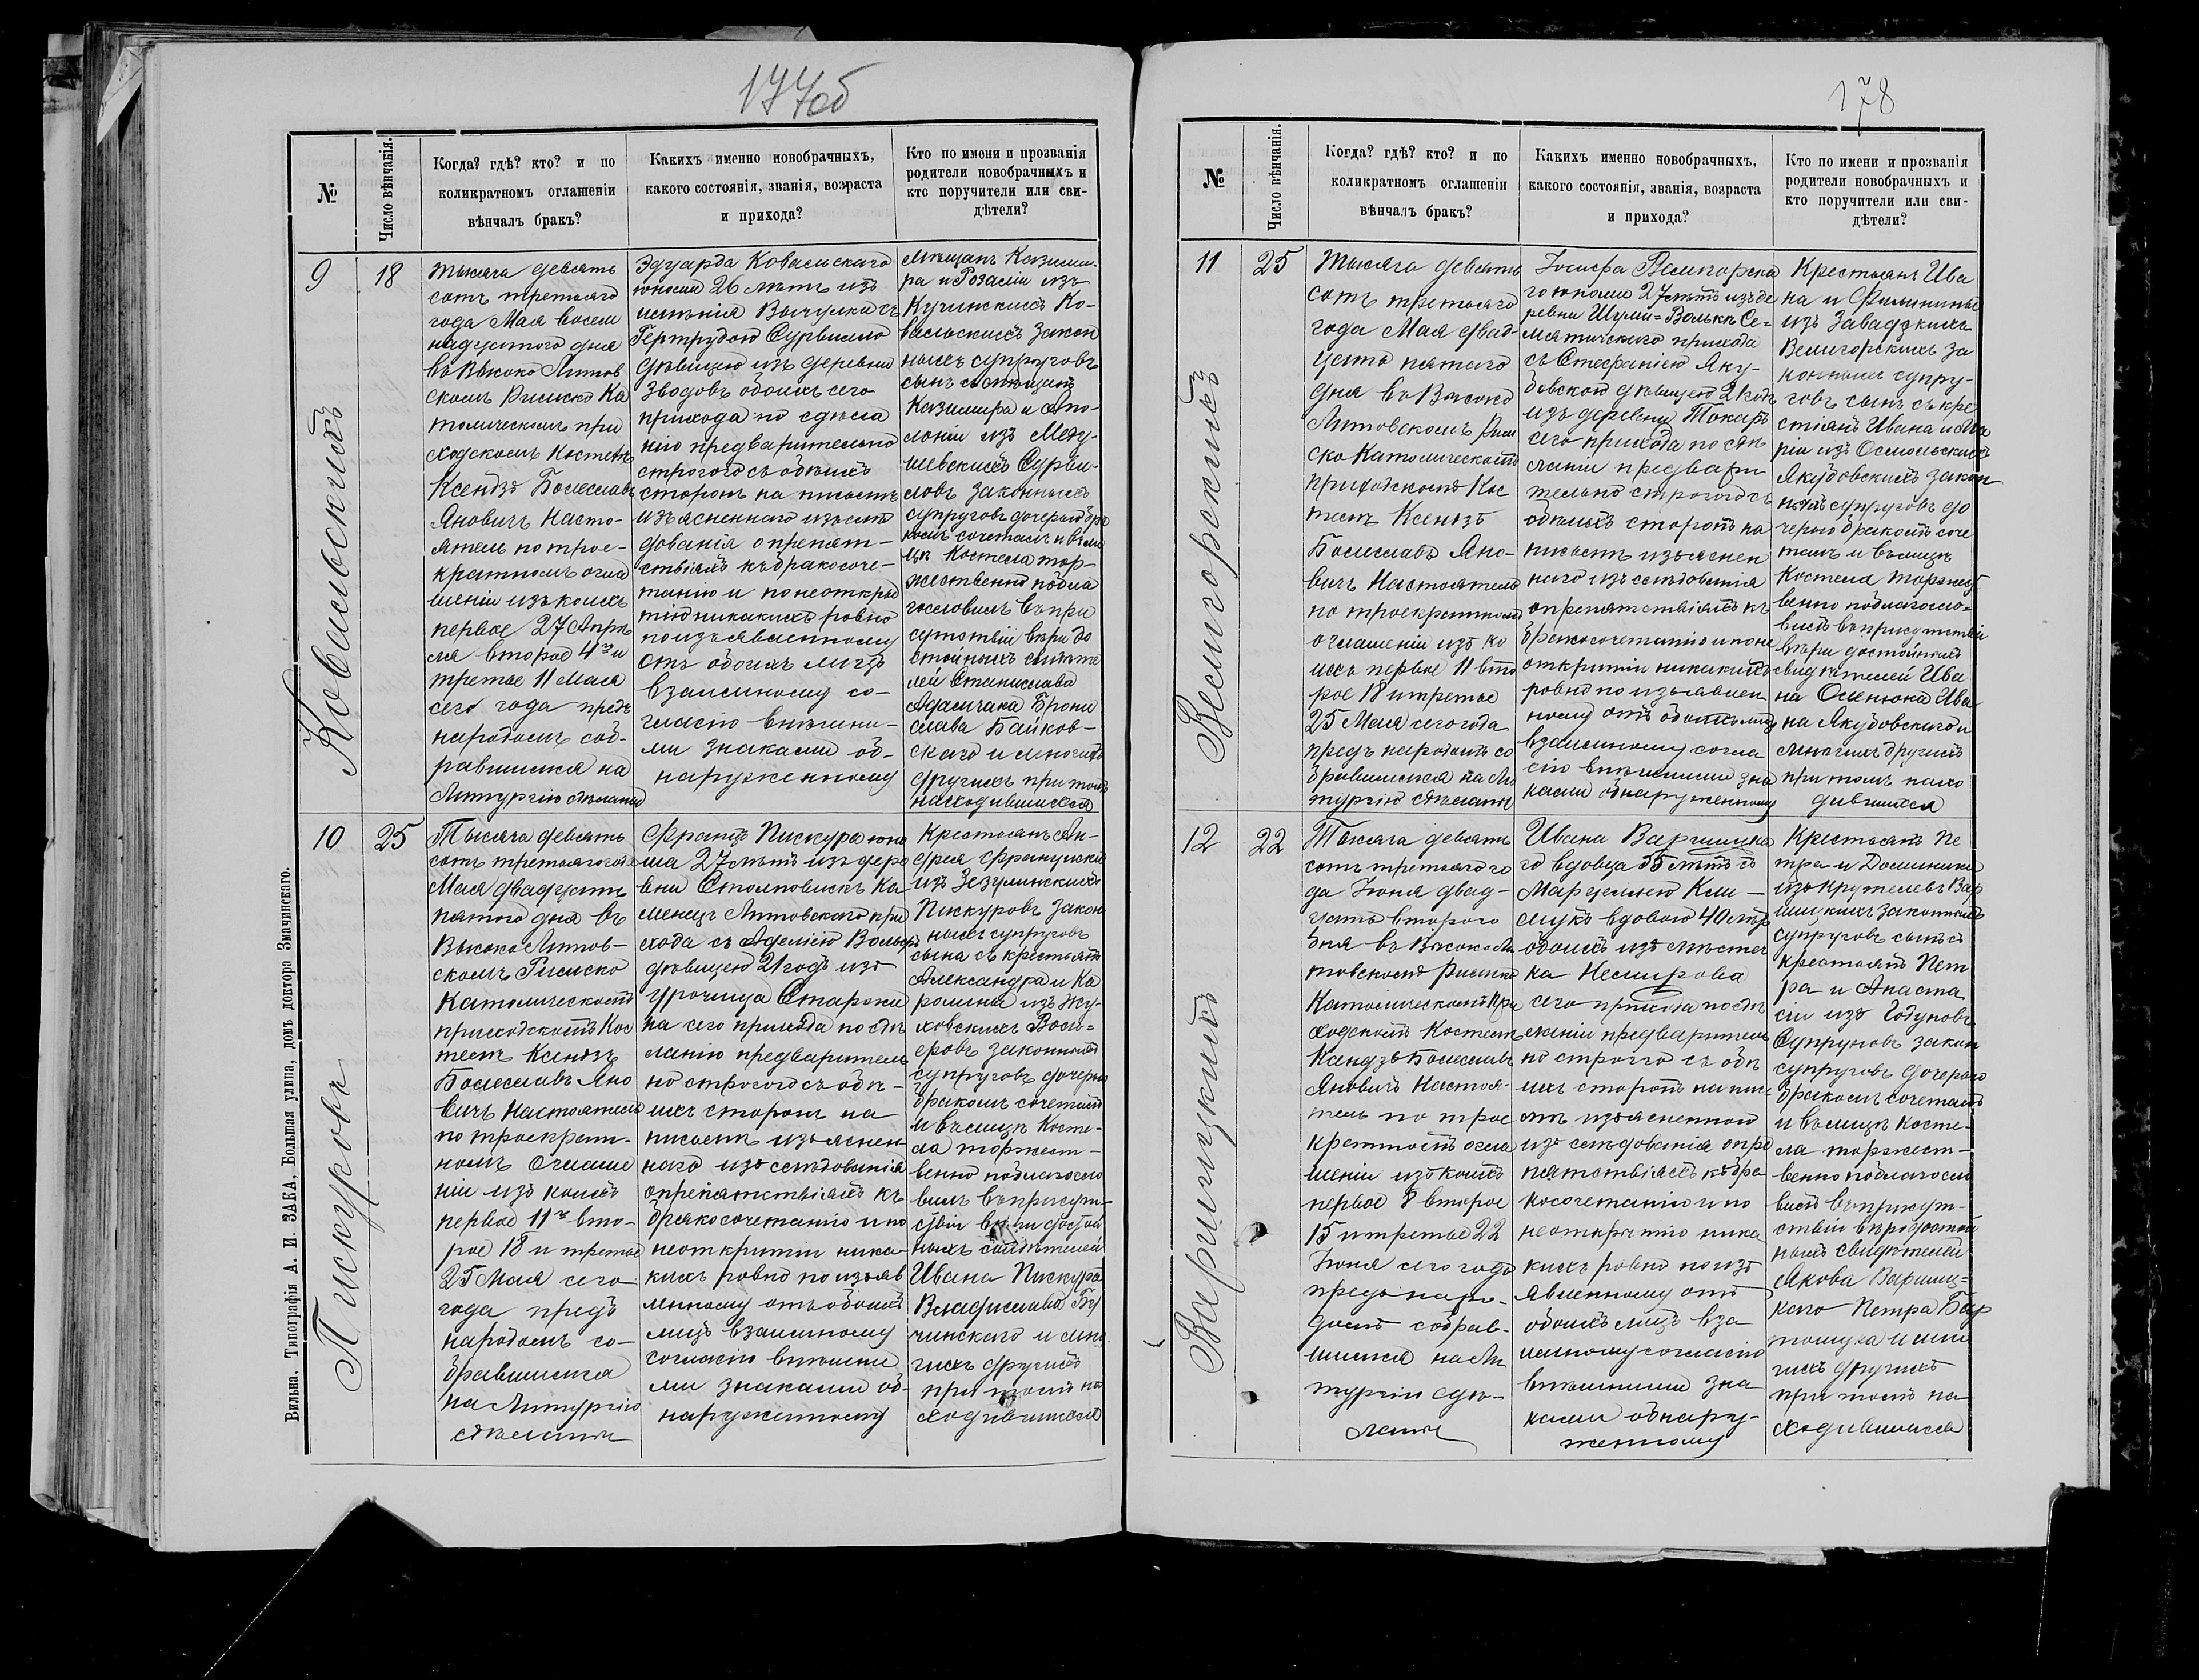 177об
№
Число вѣнчанія.
Когда? гдѣ? кто? и по
коликратномъ оглашеніи
вѣнчалъ бракъ?
Какихъ именно новобрачныхъ,
какого состоянія, званія, возраста
и прихода?
Кто по имени и прозванія
родители новобрачныхъ и
кто поручители или сви-
дѣтели?
9
Ковальскихъ
18
Тысяча девять
сотъ третьяго
года Мая восем
надцатого дня
въ Высоко Литов
скомъ Римско Ка
толическомъ при
ходскомъ Костелѣ
Ксендзъ Болеславъ
Яновичъ Насто-
ятель по трое-
кратномъ огла
шеніи изъ коихъ
первое 27 Апрѣ
ля второе 4го и
третье 11 Мая
сего года предъ
народомъ соб-
равшимся на
Литургію сдѣланом
Эдуарда Ковальскаго
юношу 26 лѣтъ изъ
имѣнія Вычулки съ
Гертрудою Сурвилло
дѣвицею изъ деревни
Зводовъ обоихъ сего
прихода по сдѣла
нію предварительно
строгого съ обѣихъ
сторонъ на письмѣ
изъясненнаго изслѣ
дованія о препят-
ствіяхъ къ бракосоче-
танію и по неоткры
тію никакихъ ровно
по изъявленному
отъ обоихъ лицъ
взаимному со-
гласію внѣшни-
ми знаками об-
наруженному
Мѣщанъ Казими-
ра и Розаліи изъ
Кучинскихъ Ко-
вальскихъ закон
ныхъ супруговъ
сынъ съ мѣщанъ
Казимира и Апо-
лоніи изъ
Сурви-
ловъ законныхъ
супруговъ дочерью бра
комъ сочеталъ и въ ли
цѣ Костела тор-
жественно побла
гословилъ въ при
сутствіи вѣри до
стойныхъ свидѣте
лей Станислава
Адамчака Брони
слава Байков-
скаго и многихъ
другихъ при томъ
находившихся
10
Пискуровъ
25
Тысяча девять
сотъ третьяго года
Мая двадцать
пятого дня въ
Высоко Литов-
скомъ Римско
Католическомъ
приходскомъ Кос
телѣ Ксендзъ
Болеславъ Яно
вичъ Настоятель
по троекрат-
номъ оглаше
ніи изъ коихъ
первое 11го вто-
рое 18 и третье
25 Мая сего
года предъ
народомъ со-
бравшимся
на Литургію
сдѣланом
Францъ Пискура юно
ша 27 лѣтъ изъ дере
вни Столповискъ Ка
менецъ Литовскаго при
хода съ Аделією Вольфъ
дѣвицею 21 годъ изъ
урочища Старжи
на сего прихода по сдѣ
ланію предваритель
но строгого съ обѣ-
ихъ сторонъ на
письмѣ изъяснен
наго изслѣдованія
о препятствіяхъ къ
бракосочетанію и по
неоткрытіи ника-
кихъ ровно по изъяв
ленному отъ обоихъ
лицъ взаимному
согласію внѣшни
ми знаками об-
наруженному
Крестьянъ Ан-
дрея Франциски
изъ Зезулинскихъ
Пискуровъ закон
ныхъ супруговъ
сына съ крестьянъ
Александра и Ка
ролины изъ Жу-
ховскихъ
законныхъ
супруговъ дочерью
бракомъ сочеталъ
и въ лицѣ Косте-
ла торжест-
венно поблагосло
вилъ въ присут-
ствіи вѣри достой
ныхъ свидѣтелей
Ивана Пискура
Владислава Бу
чинскаго и мно
гихъ другихъ
при томъ на
ходившихся
Вильна. Типографія А. И. ЗАКА, Большая улица, домъ доктора Змачинскаго.
178
№
Число вѣнчанія.
Когда? гдѣ? кто? и по
коликратномъ оглашеніи
вѣнчалъ бракъ?
Какихъ именно новобрачныхъ,
какого состоянія, званія, возраста
и прихода?
Кто по имени и прозванія
родители новобрачныхъ и
кто поручители или сви-
дѣтели?
11
Велигорскихъ
25
Тысяча девять
сотъ третьяго
года Мая двад-
цать пятаго
дня въ Высоко
Литовскомъ Рим
ско Католическомъ
приходскомъ Кос
телѣ Ксендзъ
Болеславъ Яно-
вичъ Настоятель
по троекратномъ
оглашеніи изъ ко
ихъ первое 11 вто
рое 18 и третье
25 Мая сего года
предъ народомъ со
бравшимся на Ли
тургію сдѣланом
Іосифа Велигорска
го юношу 27 лѣтъ изъ де
ревни Шуми=Волькъ Се=
мятичскаго прихода
съ Стефанією Яку-
бовскою дѣвицею 21 годъ
изъ деревни Токаръ
сего прихода по сдѣ
ланіи предвари
тельно строгого съ
обѣихъ сторонъ на
письмѣ изъяснен
наго изслѣдованія
о препятствіяхъ къ
бракосочетанію и по не
открытіи никакихъ
ровно по изъявлен
ному отъ обоихъ лицъ
взаимному согла
сію внѣшними зна
ками обнаруженному
Крестьянъ Ива
на и
изъ Завадзкихъ
Велигорскихъ за
конныхъ супру-
говъ сынъ съ кре
стьянъ Ивана и Ма
ріи изъ Осмольскихъ
Якубовскихъ закон
ныхъ супруговъ до
черью бракомъ соче
талъ и въ лицѣ
Костела торжест
венно поблагосло=
вилъ въ присутствіи
вѣри достойныхъ
свидѣтелей Ива
на Осенюка Ива
на Якубовскаго и
многихъ другихъ
при томъ нахо
дившихся
12
Варшицкихъ
22
Тысяча девять
сотъ третьяго го
да Іюня двад-
цать второго
дня въ Высоко Ли
товскомъ Римско
Католическомъ при
ходскомъ Костелѣ
Ксендзъ Болеславъ
Яновичъ Настоя-
тель по трое
кратномъ огла
шеніи изъ коихъ
первое 8 второе
15 и третье 22
Іюня сего года
предъ наро-
домъ собрав-
шимся на Ли
тургіи сдѣ-
ланом
Ивана Варшицка
го вдовца 55 лѣтъ съ
Марцеллею Кли-
мукъ вдовою 40 лѣтъ
обоихъ изъ мѣстеч
ка Немирова
сего прихода по сдѣ
ланіи предваритель
но строгого съ обѣ
ихъ сторонъ на пис
мѣ изъясненнои
изслѣдованія о пре
пятствіяхъ къ бра-
косочетанію и по
неоткрытію ника
кихъ ровно по изъ
явленному отъ
обоихъ лицъ вза
имному согласію
внѣшними зна
ками обнару-
женному
Крестьянъ Пе
тра и Доминики
изъ Крутелевъ Вар
шицкихъ законныхъ
супруговъ сынъ съ
крестьянъ Пет
ра и Анаста
сіи изъ Годуновъ
Супруговъ закон
супруговъ дочерью
бракомъ сочеталъ
и въ лицѣ Косте-
ла торжест-
венно поблагосло
вилъ въ присут-
ствіи вѣродостой
ныхъ свидѣтелей
Якова Варшиц=
каго Петра Бар
тошука и мно
гихъ другихъ
при томъ на
ходившихся